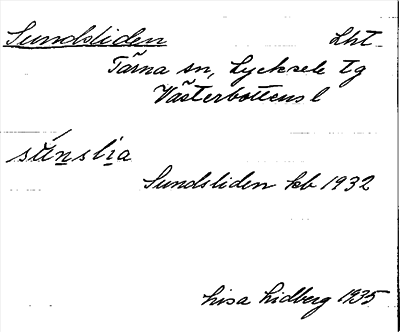 Sundsliden Lht
Tärna sn, Lycksele tg
Västerbottens l
Sundsliden kb 1932
Lisa Lidberg 1935